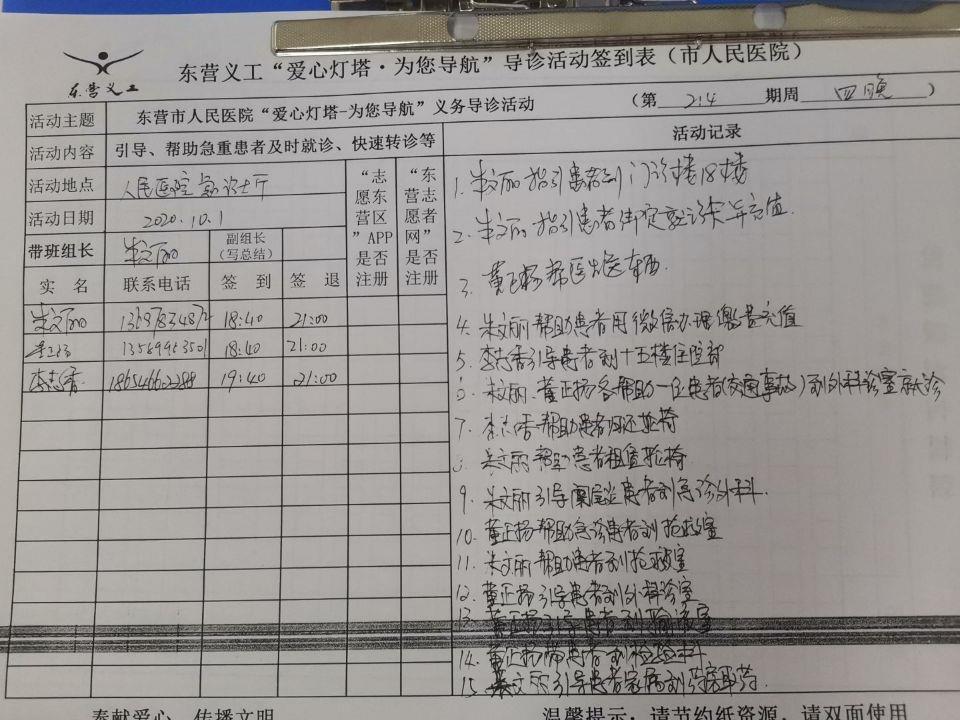 东营义工
东营义工“爱心灯塔·为您导航”导诊活动签到表（市人民医院）
（第 214 期周 四晚 ）
活动主题 东营市人民医院“爱心灯塔-为您导航”义务导诊活动
活动内容 引导、帮助急重患者及时就诊、快速转诊等
活动地点 人民医院急诊大厅
活动日期 2020.10.1
带班组长 朱文丽 副组长（写总结）
“志愿东营区”APP是否注册
“东营志愿者网”是否注册
实 名 联系电话 签 到 签 退
朱文丽 18:40 21:00
13589983501 18:40 21:00
李志香 18654662288 19:40 21:00
活动记录
1. 朱文丽指引患者到门诊楼18楼
2. 朱文丽指引患者绑定就诊卡并充值.
3. 董正扬帮
4. 朱文丽帮助患者用微信办理缴费充值
5. 李志香引导患者到十五楼住院部
6. 朱文丽.董正扬各帮助一位患者(交通事故)到外科诊室就诊
7. 李志香帮助患者归还轮椅
8. 朱文丽帮助患者租赁轮椅
9. 朱文丽引导阑尾炎患者到急诊外科.
10. 董正扬帮助急诊患者到抢救室
11. 朱文丽帮助患者到抢救室
12. 董正扬引导患者到外科诊室
13. 董正扬引导患者到输液室
14. 董正扬带患者到检验科
15. 朱文丽引导患者家属到药房取药.
奉献爱心 传播文明
温馨提示：请节约纸资源，请双面使用